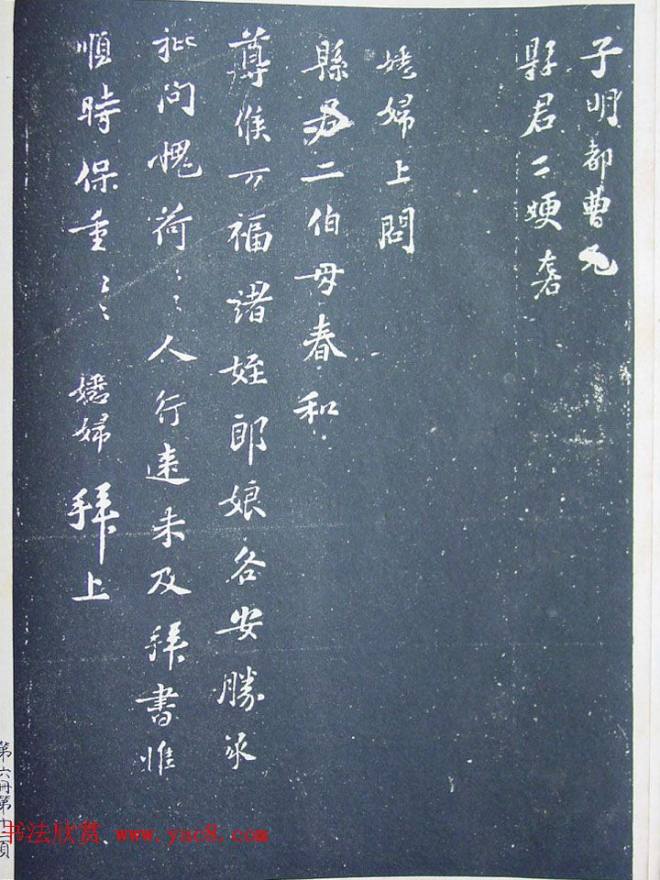 子明都曹兄
縣君二㛐老
媳婦上問
縣君二伯母春和
尊候万福諸姪郎娘各安勝承
批问愧荷〻人行速未及拜書惟
順時保重〻媳婦拜上
第六冊第十頁
书法欣赏 www.yac8.com